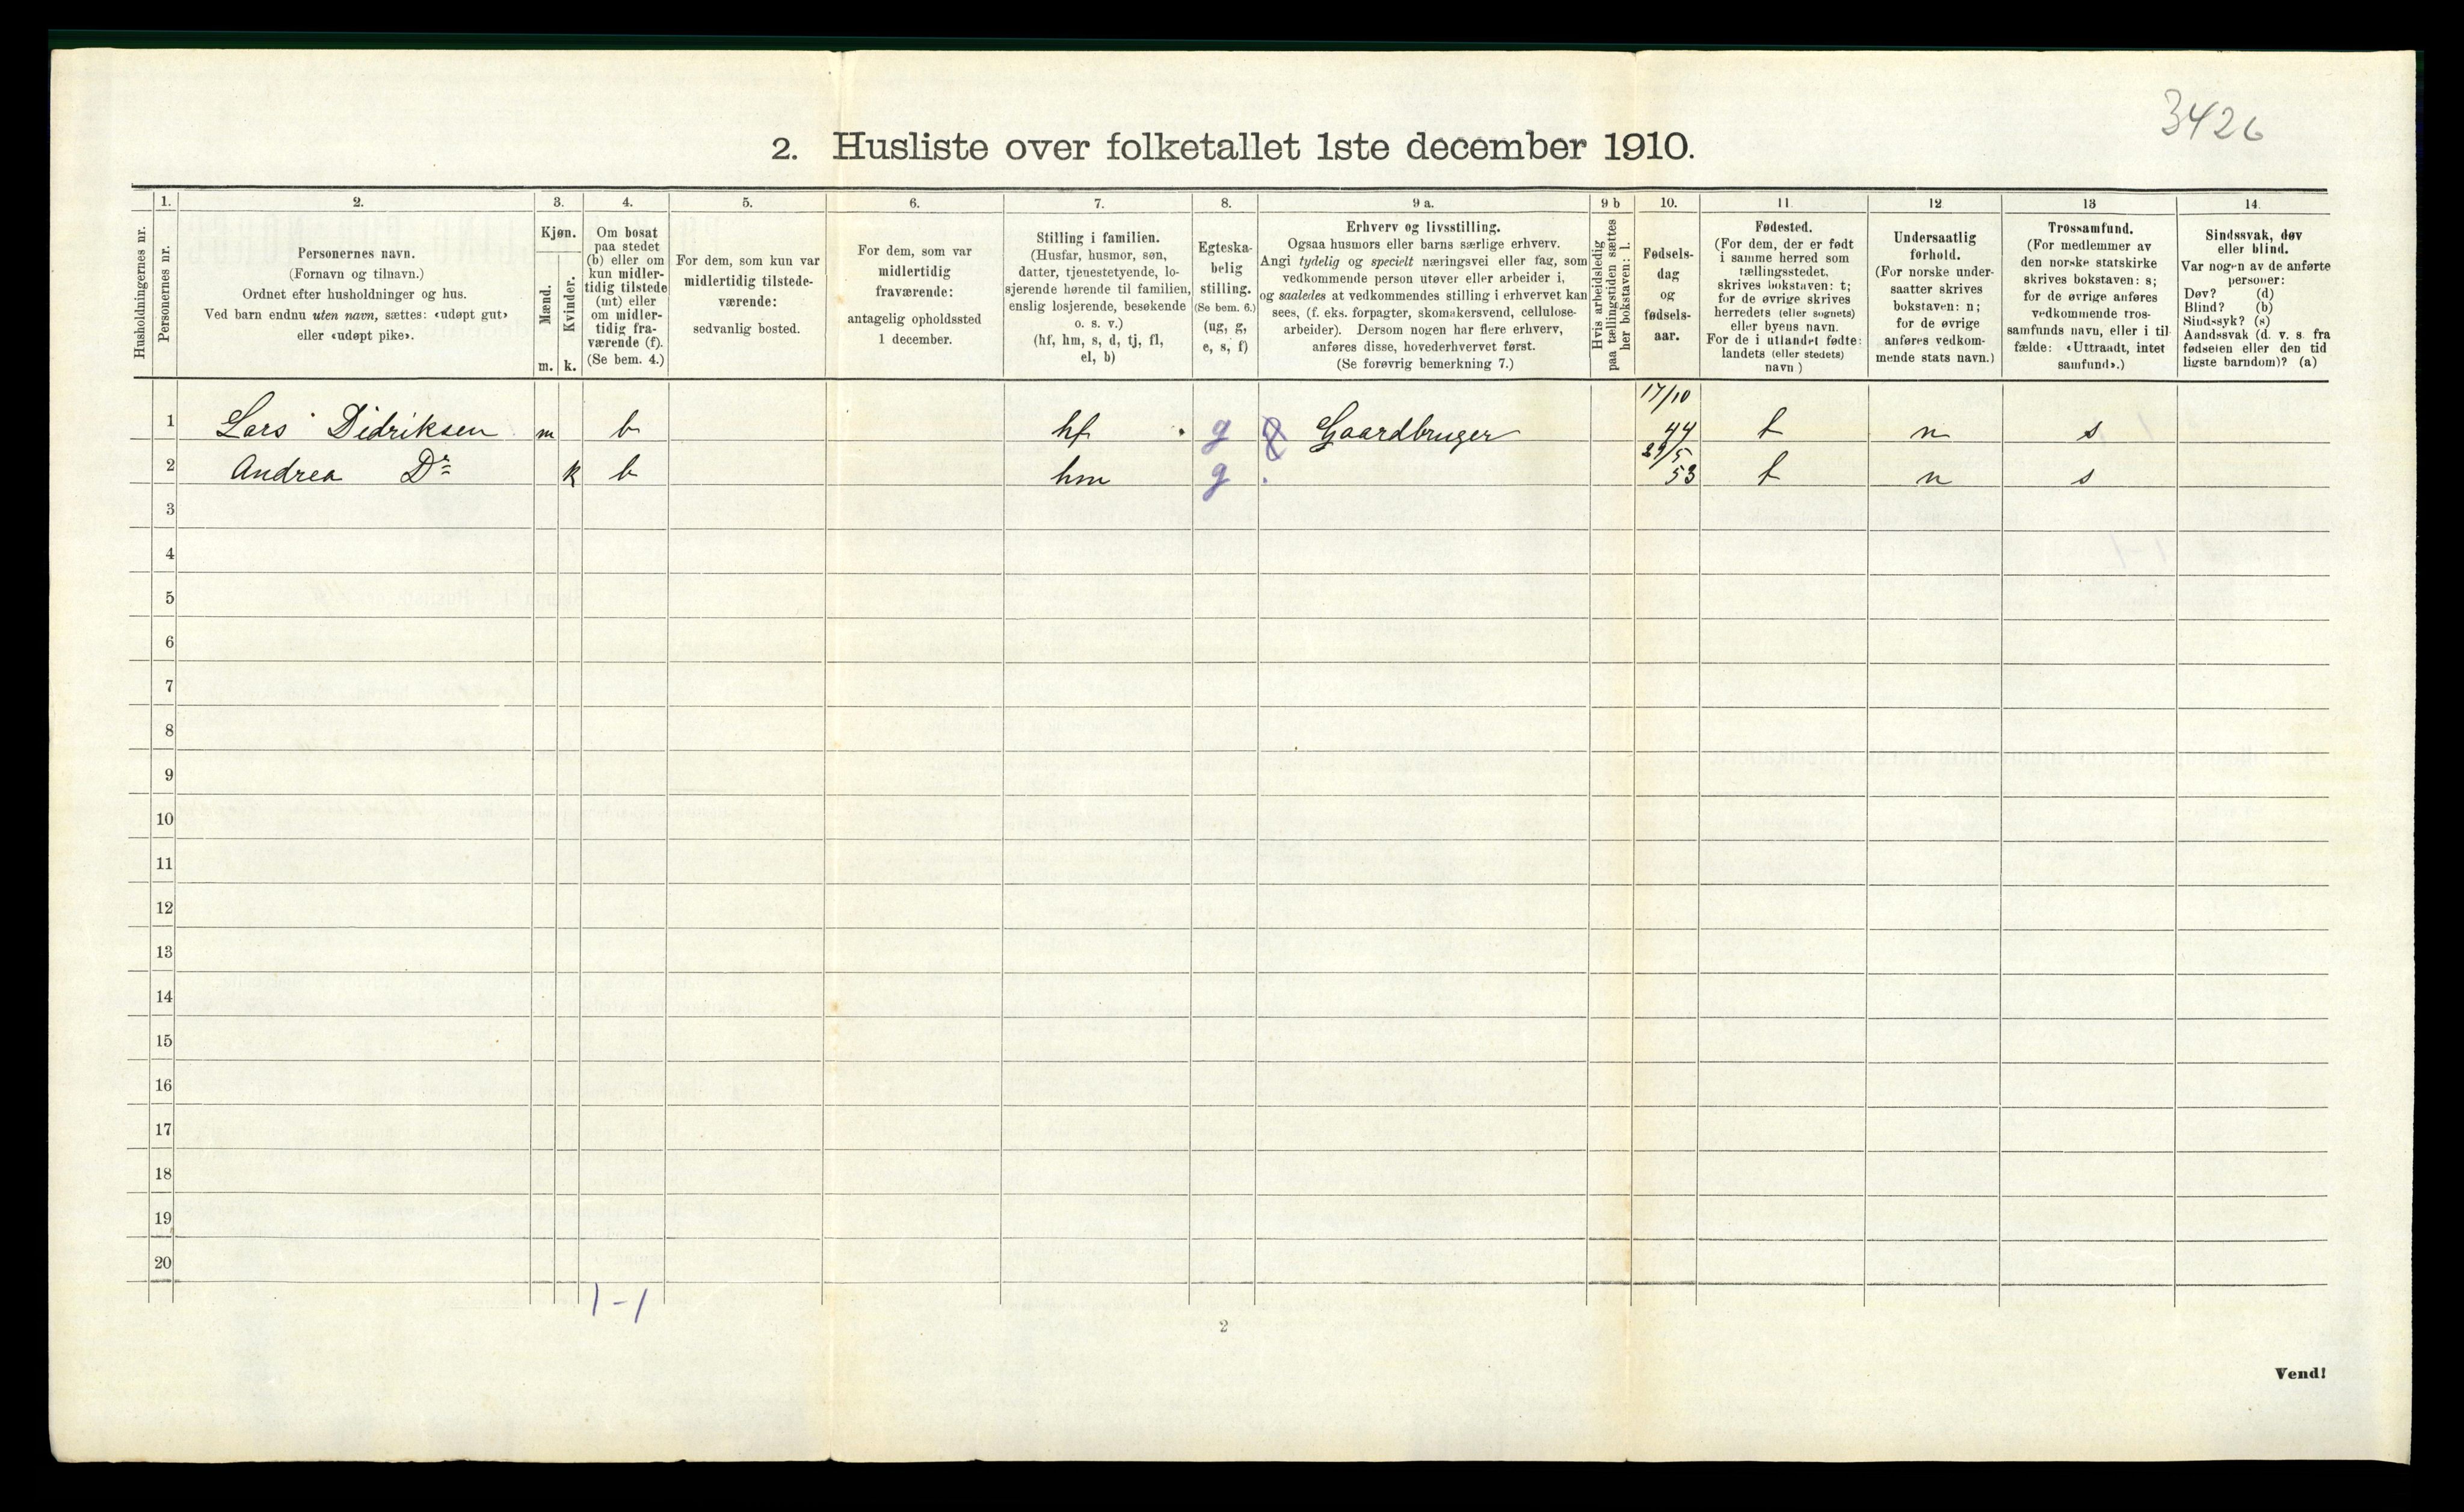 3426
2. Husliste over folketallet 1ste december 1910.
Husholdningernes nr.
1.
Personernes nr.
2.
Personernes navn.
(Fornavn og tilnavn.)
Ordnet efter husholdninger og hus.
Ved barn endnu uten navn, sættes: «udøpt gut»
eller «udøpt pike».
3.
Kjøn.
Mænd.
Kvinder.
m. k.
4.
Om bosat
paa stedet
(b) eller om
kun midler-
tidig tilstede
(mt) eller
om midler-
tidig fra-
værende (f).
(Se bem. 4.)
5.
For dem, som kun var
midlertidig tilstede-
værende:
sedvanlig bosted.
6.
For dem, som var
midlertidig
fraværende:
antagelig opholdssted
1 december.
7.
Stilling i familien.
(Husfar, husmor, søn,
datter, tjenestetyende, lo-
sjerende hørende til familien,
enslig losjerende, besøkende
o. s. v.)
(hf, hm, s, d, tj, fl,
el, b)
8.
Egteska-
belig
stilling.
(Se bem. 6.)
(ug, g,
e, s, f)
9 a.
Erhverv og livsstilling.
Ogsaa husmors eller barns særlige erhverv.
Angi tydelig og specielt næringsvei eller fag, som
vedkommende person utøver eller arbeider i,
og saaledes at vedkommendes stilling i erhvervet kan
sees, (f. eks. forpagter, skomakersvend, cellulose-
arbeider). Dersom nogen har flere erhverv,
anføres disse, hovederhvervet først.
(Se forøvrig bemerkning 7.)
9 b
Hvis arbeidsledig
paa tællingstiden sættes
her bokstaven: l.
10.
Fødsels-
dag
og
fødsels-
aar.
11.
Fødested.
(For dem, der er født
i samme herred som
tællingsstedet,
skrives bokstaven: t;
for de øvrige skrives
herredets (eller sognets)
eller byens navn.
For de i utlandet fødte:
landets (eller stedets)
navn.)
12
Undersaatlig
forhold.
(For norske under-
saatter skrives
bokstaven: n;
for de øvrige
anføres vedkom-
mende stats navn.)
13
Trossamfund.
(For medlemmer av
den norske statskirke
skrives bokstaven: s;
for de øvrige anføres
vedkommende tros-
samfunds navn, eller i til
fælde: «Uttraadt, intet
samfund».)
14.
Sindssvak, døv
eller blind.
Var nogen av de anførte
personer:
Døv? (d)
Blind? (b)
Sindssyk? (s)
Aandssvak (d. v. s. fra
fødselen eller den tid
ligste barndom)? (a)
1 Lars Didriksen m b hf g Gaardbruger 17/10 44 t n s
2 Andrea Dr k b hm g 29/5 53 t n s
3
4
5
6
7
8
9
10
11
12
13
14
15
16
17
18
19
20
1-1
2
Vend!